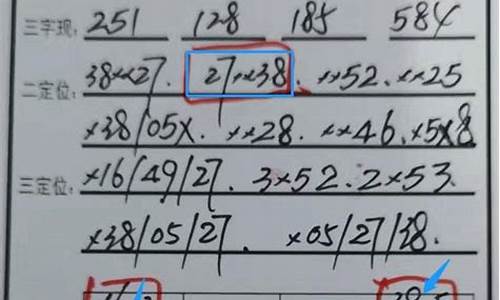 三字现: 251 128 185 584
二定位: 38××27. 27××38. ××52. ××25
×38/05×. ××28. ××46. ×5×8
三定位: ×16/49/27. 3×52. 2×53.
×38/05/27 ×05/27/38.